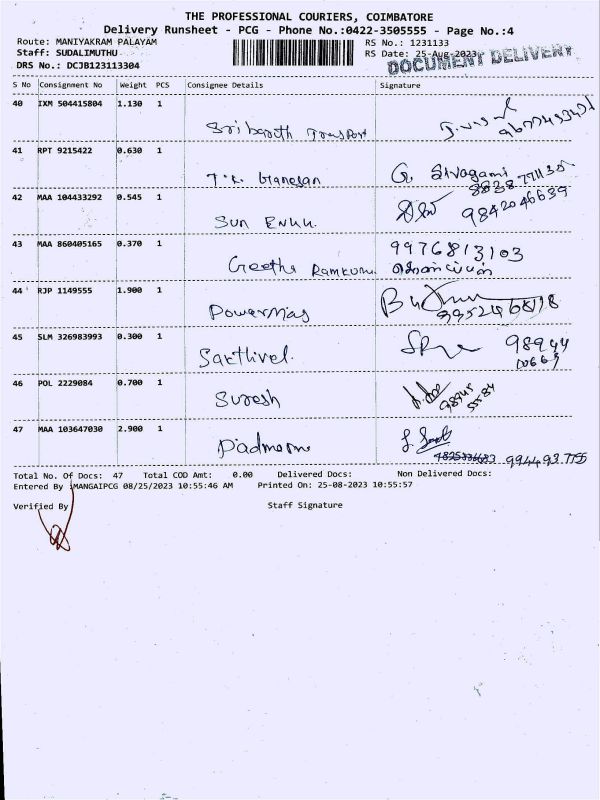 THE PROFESSIONAL COURIERS, COIMBATORE
Delivery Runsheet - PCG - Phone No.:0422-3505555 - Page No.:4
Route: MANIYAKRAM PALAYAM RS No.: 1231133
Staff: SUDALIMUTHU RS Date: 25-Aug-2023
DRS No.: DCJB123113304 DOCUMENT DELIVERY
S No Consignment No Weight PCS Consignee Details Signature
40 IXM 504415804 1.130 1
Transport
41 RPT 9215422 0.630 1
T.K. Ganesan G. Sivagami
42 MAA 104433292 0.545 1
Sun 9842046639
43 MAA 860405165 0.370 1 9976813103
Geetha Ramkumar
44 RJP 1149555 1.900 1
Powermag
45 SLM 326983993 0.300 1
Sakthivel 98944
46 POL 2229084 0.700 1
Suresh
47 MAA 103647030 2.900 1
Total No. Of Docs: 47 Total COD Amt: 0.00 Delivered Docs: Non Delivered Docs:
Entered By :MANGAIPCG 08/25/2023 10:55:46 AM Printed On: 25-08-2023 10:55:57
Verified By Staff Signature